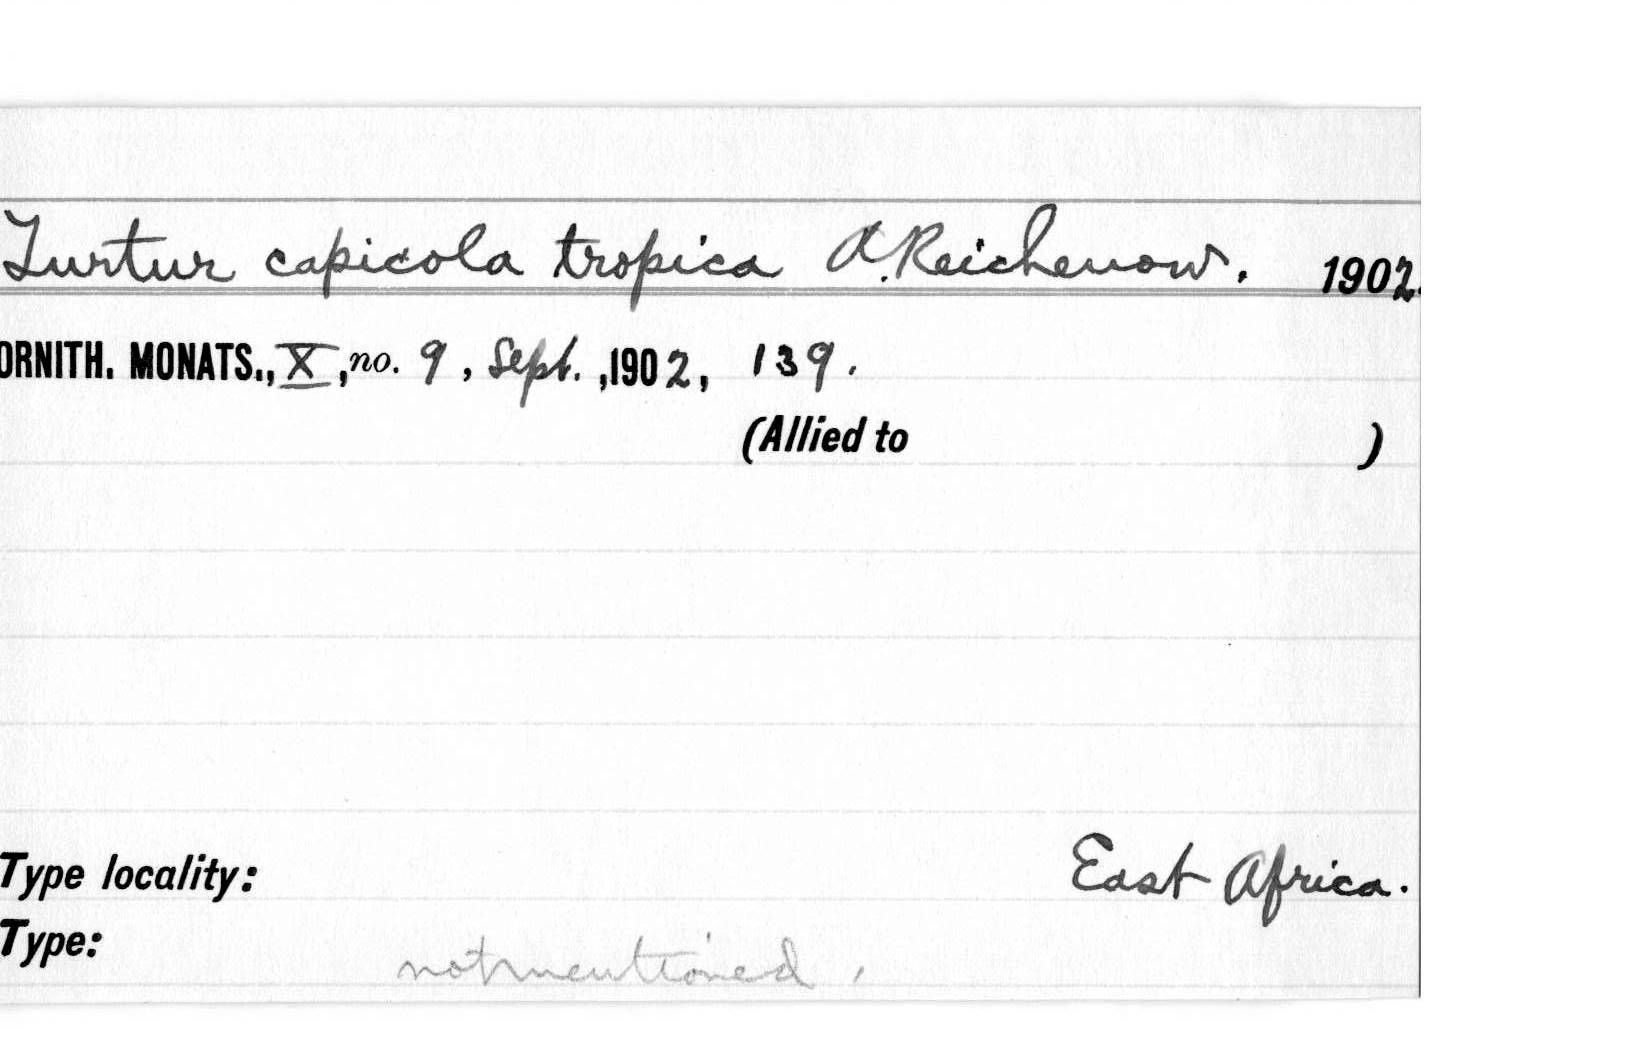 Turtur capicola tropica A. Reichenow. 1902.
ORNITH. MONATS., X, no. 9, Sept., 1902, 139.
(Allied to )
Type locality: East Africa.
Type: not mentioned.